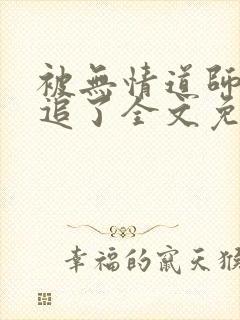 被無情道師
追了全文免
幸福的竄天猴